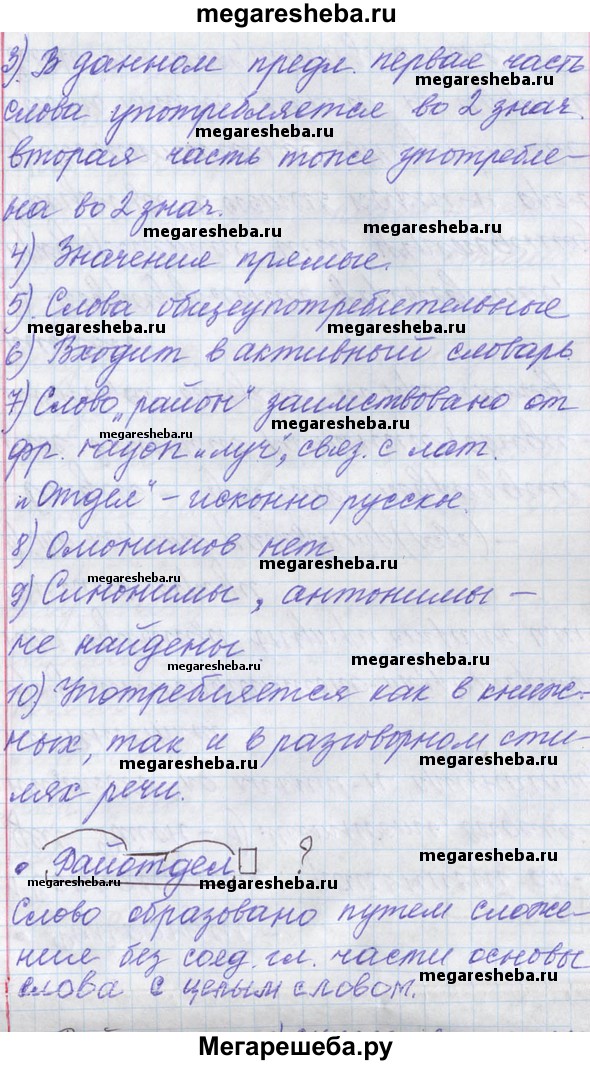 megaresheba.ru
3) В данном предл. первая часть
megaresheba.ru
слова употребляется во 2 знач.
megaresheba.ru
вторая часть тоже употребле-
megaresheba.ru
на во 2 знач.
megaresheba.ru megaresheba.ru
4) Значения прямые.
5) Слова общеупотребительные
megaresheba.ru megaresheba.ru
6) Входит в активный словарь
7) Слово „район“ заимствовано от
megaresheba.ru megaresheba.ru
фр. rayon „луч“, связ. с лат.
„Отдел“ – исконно русское.
megaresheba.ru
8) Омонимов нет
megaresheba.ru
megaresheba.ru
9) Синонимы, антонимы –
не найдены
megaresheba.ru megaresheba.ru
10) Употребляется как в книж-
ных, так и в разговорном сти-
megaresheba.ru megaresheba.ru
лях речи.
• Райотдел ?
megaresheba.ru
megaresheba.ru megaresheba.ru
Слово образовано путем сложе-
ния без соед. гл. части основы
megaresheba.ru megaresheba.ru
слова с целым словом.
Мегарешеба.ру